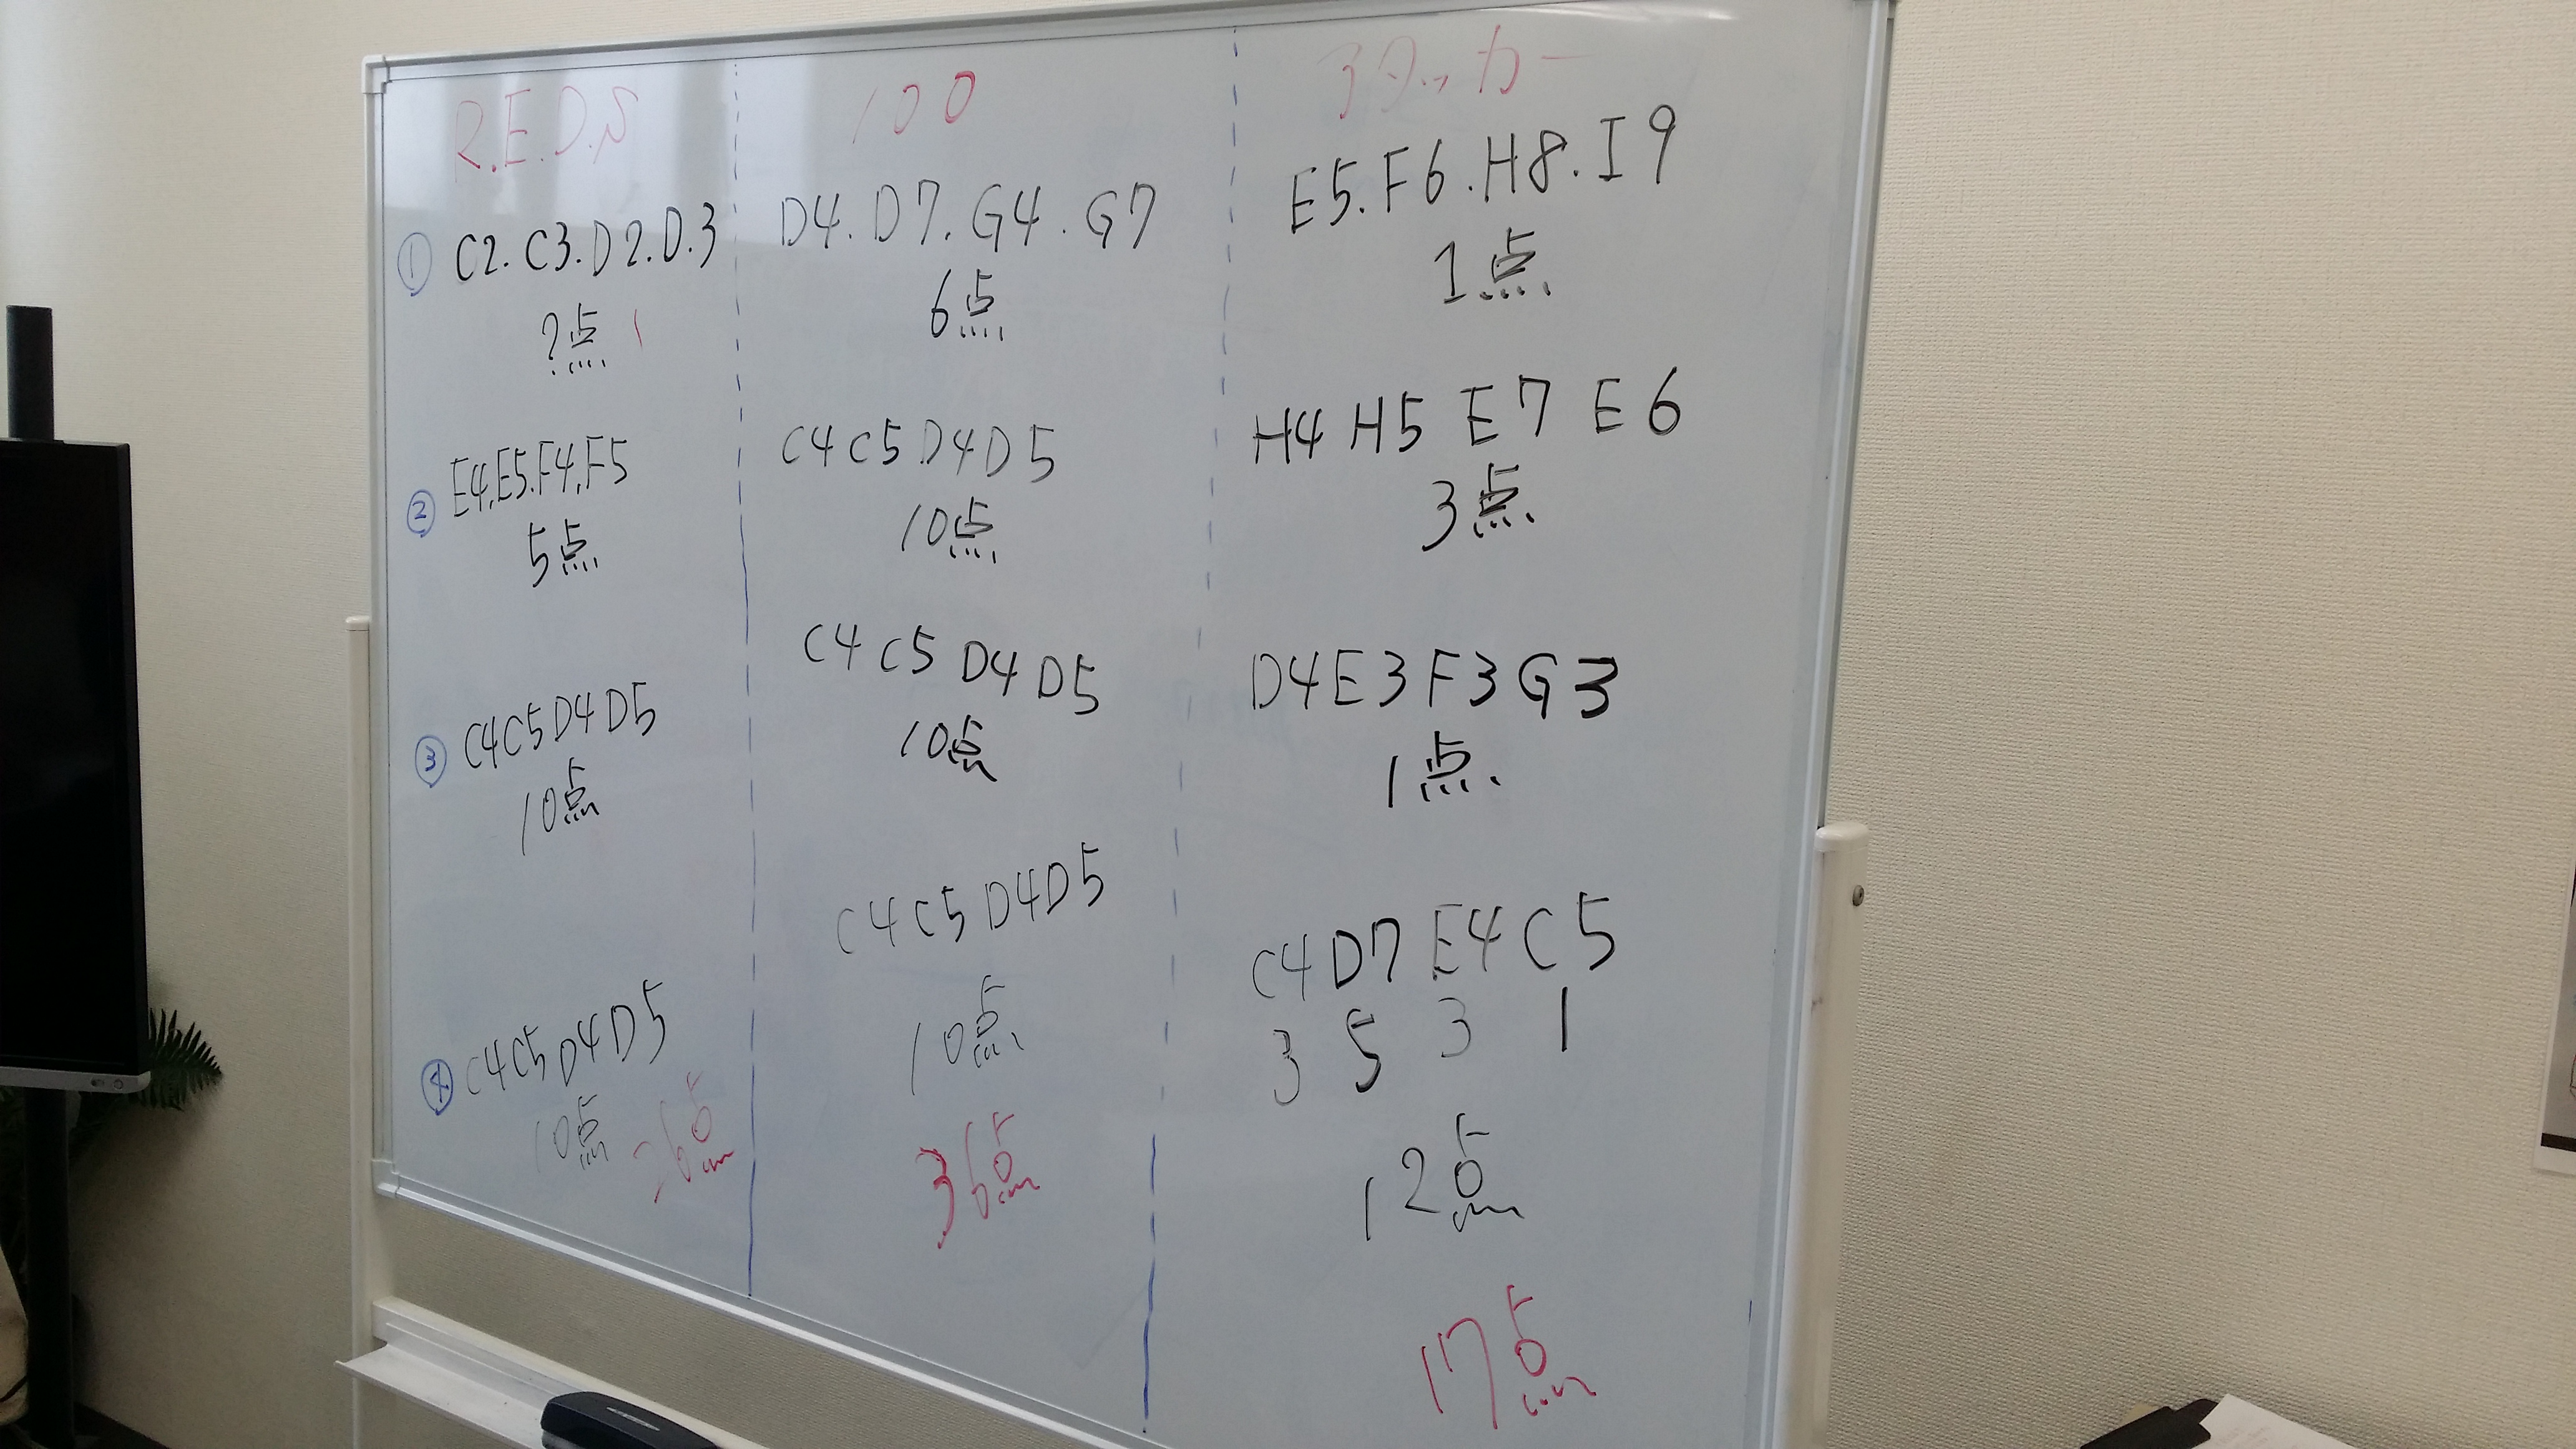 R.E.D.S
① C2. C3. D2. D.3
?点 1
② E4.E5.F4.F5
5点
③ C4C5D4D5
10点
④ C4C5D4D5
10点 26点
100
D4. D7. G4. G7
6点
C4C5D4D5
10点
C4 C5 D4 D5
10点
C4C5D4D5
10点
36点
3タッカー
E5. F6. H8. I9
1点
H4 H5 E7 E6
3点
D4E3F3G3
1点
C4D7E4C5
3 5 3 1
12点
17点